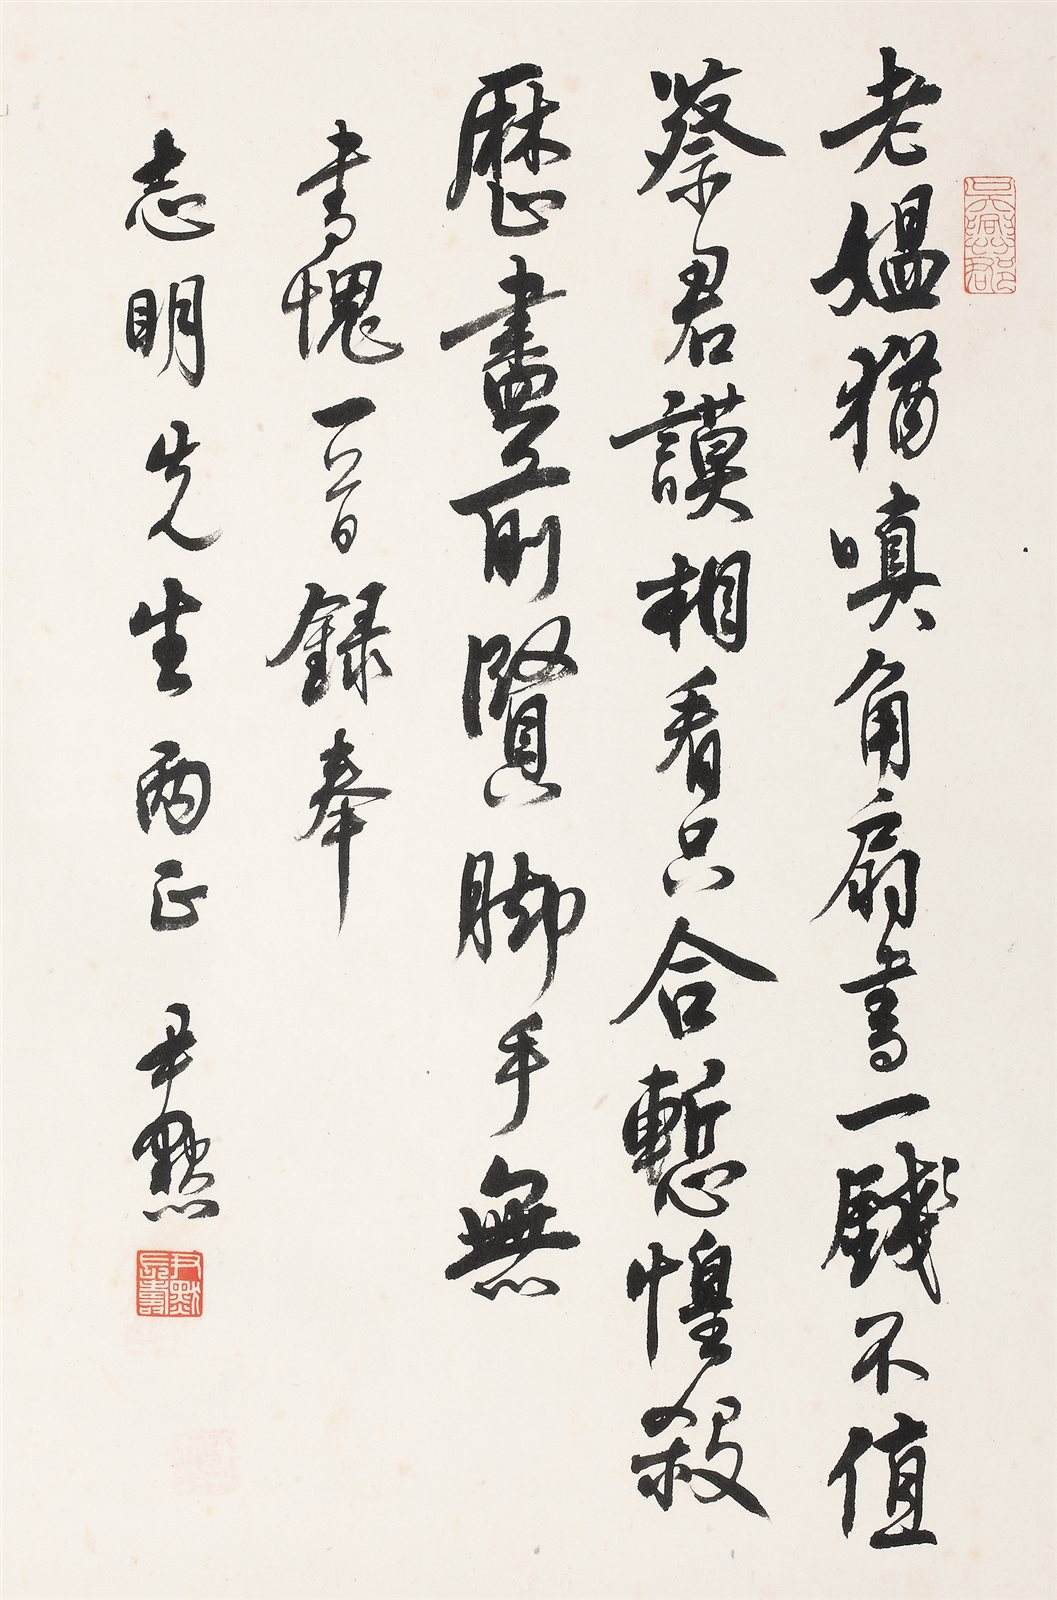 老媼猶嗔角扇書一錢不值
蔡君謨相看只合慙惶殺
歷盡前賢脚手無
書愧一首錄奉
志明先生兩正 尹默
尹默長壽